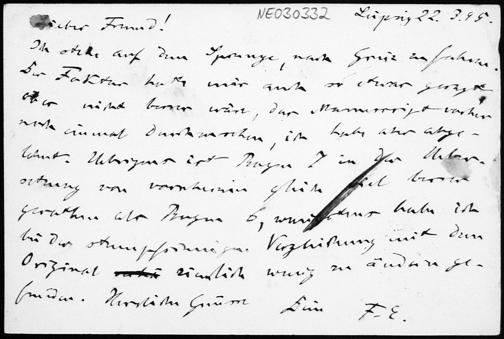 Lieber Freund! NE030332 Leipzig 22. 3. 95.
Ich stehe auf dem Sprunge, nach Greiz zu fahren.
Der Faktor hatte mir auch so etwas gesagt
ob es nicht besser wäre, das Manuscript vorher
noch einmal durchzusehen, ich habe aber abge-
lehnt. Uebrigens ist Bogen 7 in der Ueber-
setzung von vornherein viel besser
gerathen als Bogen 6, wenigstens habe ich
bei der Vergleichung mit dem
Original ziemlich wenig zu ändern ge-
funden. Herzliche Grüsse Dein F-E.